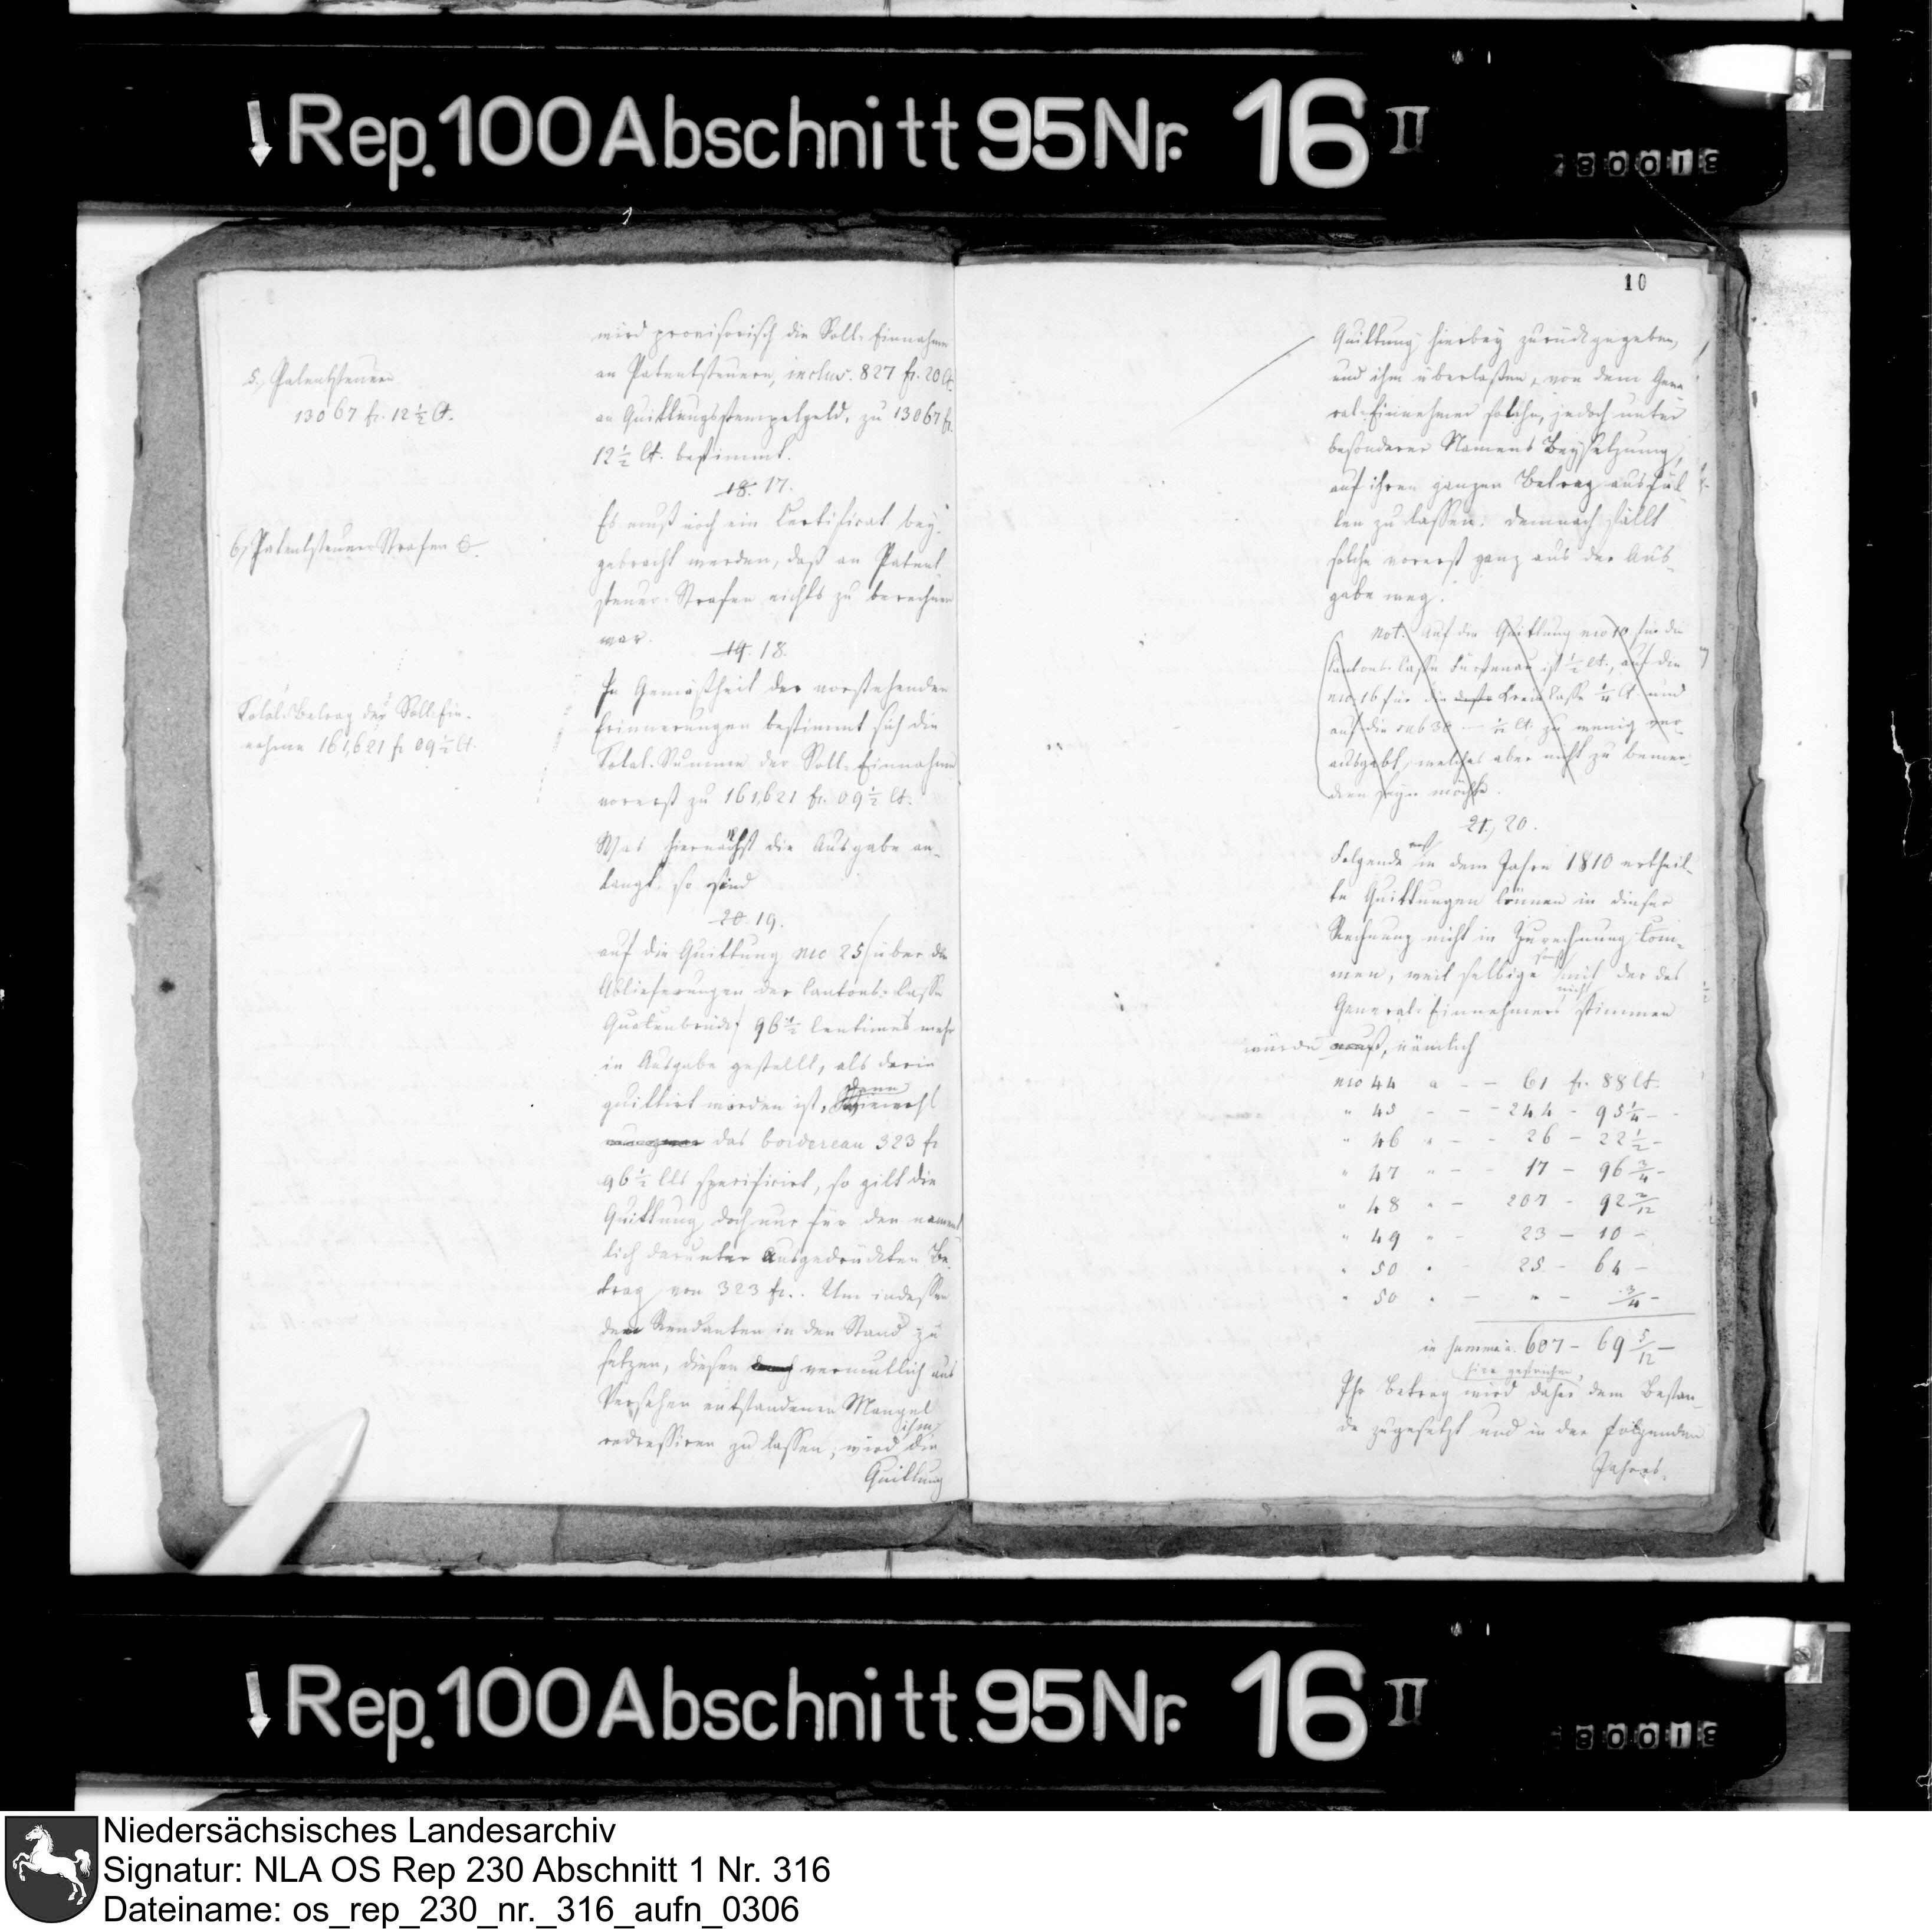 Rep. 100 Abschnitt 95 Nr. 16 II
80018
5., Patentsteuern
13067 fr. 12 ½ Ct.
6., Patentsteuer Strafen 0.
Total-Betrag der Soll-Ein-
nahme 161,621 fr 09 ½ Ct.
wird provisorisch die Soll-Einnahme
an Patentsteuern, inclus. 827 fr. 20 Ct.
an Quittungsstempelgeld, zu 13067 fr.
12 ½ Ct. bestimmt.
18. 17.
Es muß noch ein Certificat bey-
gebracht werden, daß an Patent-
steuer-Strafen nichts zu berechnen
war.
19. 18.
In Gemäßheit der vorstehenden
Erinnerungen bestimmt sich die
Total-Summe der Soll-Einnahme
vorerst zu 161,621 fr. 09 ½ Ct.
Was hiernächst die Ausgabe an-
langt, so sind
20. 19.
auf die Quittung nro 25 (über die
Ablieferungen der Cantons-Casse
Quakenbrück) 96 ½ Centimes mehr
in Ausgabe gestellt, als darin
quittirt worden ist, denn wiewohl
das bordereau 323 fr
96 ½ Cts specificirt, so gilt die
Quittung doch nur für den nament-
lich darunter ausgedrückten Be-
trag von 323 fr.. Um indessen
den Rendanten in den Stand zu
setzen, diesen vermutlich aus
Versehen entstandenen Mangel
redressiren zu lassen, wird ihm die
Quittung
10
Quittung hierbey zurückgegeben,
und ihm überlaßen, von dem Gene-
ral-Einnehmer solche, jedoch unter
besonderer Namens Beysetzung,
auf ihren ganzen Betrag ausfül-
len zu lassen. Demnach fällt
solche vorerst ganz aus der Aus-
gabe weg.
Not. Auf die Quittung nro 10 für die
Cantons-Casse Fürstenau ist ½ Ct., auf die
nro. 16 für die Kreis Casse ¼ Ct. und
auf die sub 30 — ½ Ct. zu wenig ver-
ausgabt, welches aber nicht zu bemer-
ken seyn möchte.
21., 20.
Folgende erst in dem Jahre 1810 ertheil-
te Quittungen können in dieser
Rechnung nicht in Zurechnung kom-
men, weil selbige sonst mit der des
General-Einnehmers nicht stimmen
würde, nämlich
nro 44 a - - 61 fr. 88 Ct.
" 45 - - - 244 - 95 ¼ -
" 46 " - - 26 - 22 ½ -
" 47 " - - 17 - 96 ¾ -
" 48 " - 207 - 92 2/12
" 49 " - 23 - 10 -
" 50 " - 25 - 64 -
" 50 " - " - ¾ -
in summa 607 - 69 5/12 -
hier gestrichen,
Ihr Betrag wird daher dem Bestan-
de zugesetzt und in der folgenden
Jahres-
Rep. 100 Abschnitt 95 Nr. 16 II
80018
Niedersächsisches Landesarchiv
Signatur: NLA OS Rep 230 Abschnitt 1 Nr. 316
Dateiname: os_rep_230_nr._316_aufn_0306